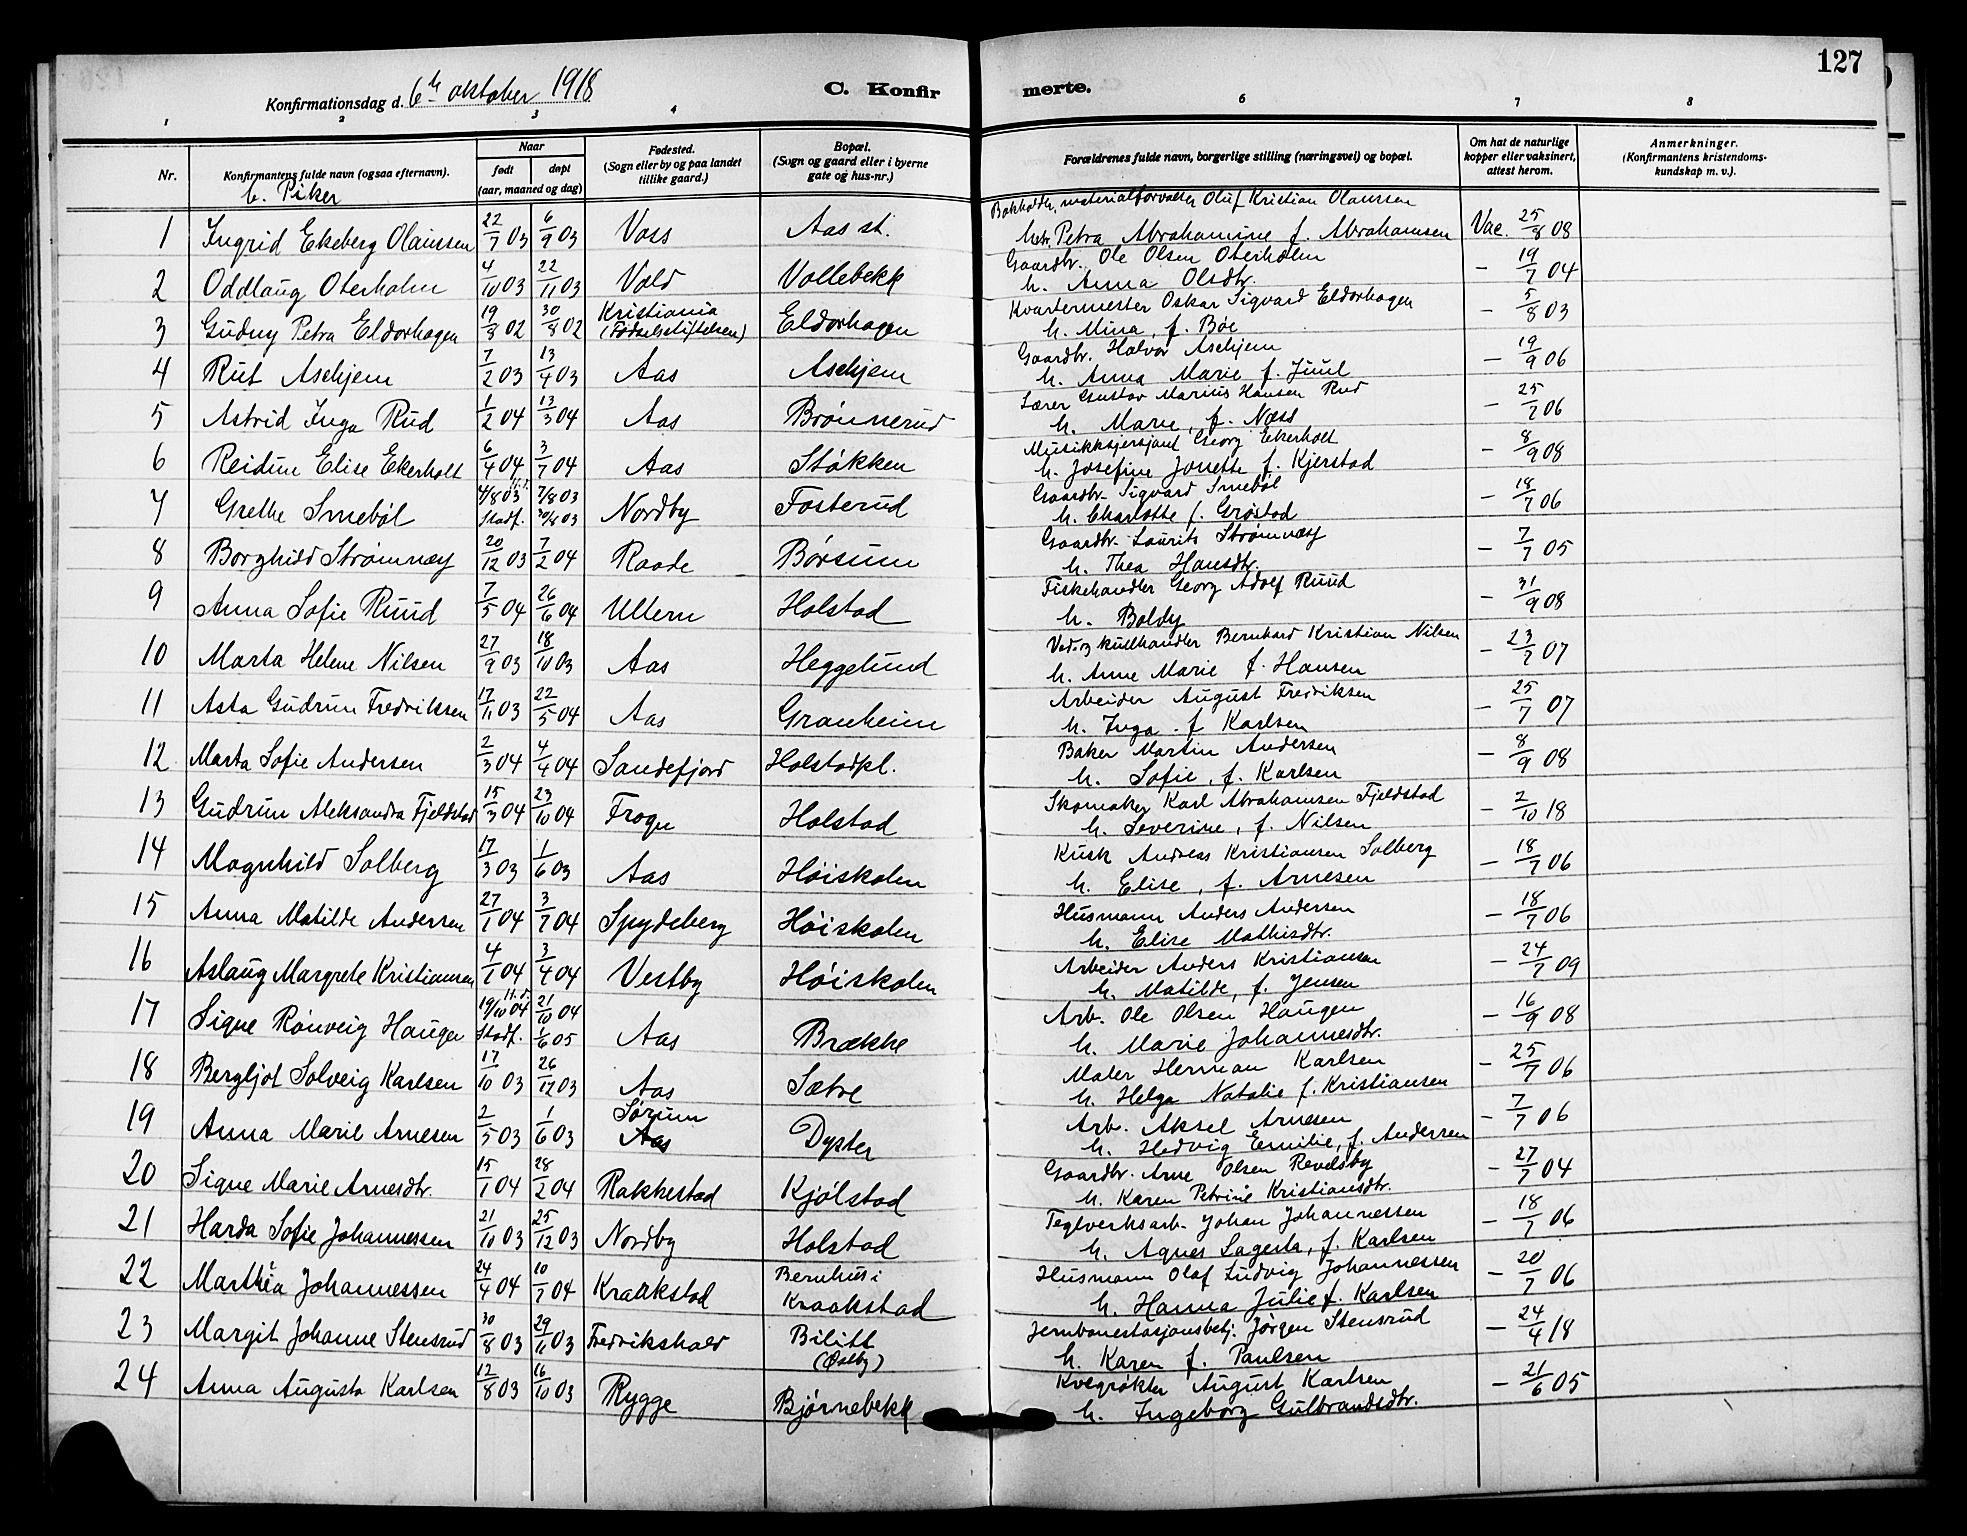 127
Konfirmationsdag d. 6te oktober 1918
C. Konfirmerte.
1 2 3 4 6 7 8
Nr.
Konfirmantens fulde navn (ogsaa efternavn).
Naar
født døpt
(aar, maaned og dag)
Fødested.
(Sogn eller by og paa landet
tillike gaard.)
Bopæl.
(Sogn og gaard eller i byerne
gate og hus-nr.)
Forældrenes fulde navn, borgerlige stilling (næringsvei) og bopæl.
Om hat de naturlige
kopper eller vaksinert,
attest herom.
Anmerkninger.
(Konfirmantens kristendoms-
kundskap m. v.).
b. Piker
Bokholder, materialforvalter Oluf Kristian Olaussen
1 Ingrid Ekeberg Olaussen 22/7 03 6/9 03 Voss Aas st. Petra Abrahamine f. Abrahamsen Vac. 25/8 08
Gaardbr. Ole Olsen Oterholm
2 Oddlaug Oterholm 4/10 03 22/11 03 Vold Vollebekk h. Anna Olsdtr. - 19/7 04
Kristiania Kvartermester Oskar Sigvard Eldorhagen
3 Gudny Petra Eldorhagen 19/8 02 30/8 02 (Fødselsstiftelsen) Eldorhagen h. Mina, f. Bøe - 5/8 03
Gaardbr. Halvor Aschjem
4 Rut Aschjem 7/2 03 13/4 03 Aas Aschjem h. Anna Marie f. Juul - 19/9 06
Lærer Gustav Marius Hansen Rud
5 Astrid Inga Rud 1/2 04 13/3 04 Aas Brønnerud h. Marie, f. Næss - 25/7 06
Musikksersjant Georg Ekerholt
6 Reidun Elise Ekerholt 6/4 04 3/7 04 Aas Støkken h. Josefine Jonette f. Kjerstad - 8/9 08
Gaardbr. Sigvard Smebøl
7 Grethe Smebøl 4/8 03 7/8 03 hj.d. Stadf. 30/8 03 Nordby Fosterud h. Charlotte f. Grøstad - 18/7 06
Gaardbr. Laurits Strømnæs
8 Borghild Strømnæs 20/12 03 7/2 04 Raade Børsum h. Thea Hansdtr. - 7/7 05
Fiskehandler Georg Adolf Ruud
9 Anna Sofie Ruud 7/5 04 26/6 04 Ullern Holstad h. Boldy - 31/9 08
Ved og kulhandler Bernhard Kristian Nilsen
10 Marta Helene Nilsen 27/9 03 18/10 03 Aas Heggelund h. Anne Marie f. Hansen - 23/7 07
Arbeider August Fredriksen
11 Asta Gudrun Fredriksen 17/11 03 22/5 04 Aas Granheim h. Inga f. Karlsen - 25/7 07
Baker Martin Andersen
12 Marta Sofie Andersen 2/3 04 4/4 04 Sandefjord Holstadpl. h. Sofie, f. Karlsen - 8/9 08
Skomaker Karl Abrahamsen Fjeldstad
13 Gudrun Aleksandra Fjeldstad 15/3 04 23/10 04 Frogn Holstad h. Severine, f. Nilsen - 2/10 18
Kusk Andreas Kristiansen Solberg
14 Magnhild Solberg 17/3 03 1/6 03 Aas Høiskolen h. Elise, f. Arnesen - 18/7 06
Husmann Anders Andersen
15 Anna Matilde Andersen 27/1 04 3/7 04 Spydeberg Høiskolen h. Elise Mathisdtr. - 18/7 06
Arbeider Anders Kristiansen
16 Aslaug Margrete Kristiansen 4/1 04 3/4 04 Vestby Høiskolen h. Matilde, f. Jensen - 24/7 09
Arb. Ole Olsen Haugen
17 Signe Rønveig Haugen 19/10 04 21/10 04 hj.d. Stadf. 1/6 05 Aas Brække h. Marie Johannesdtr. - 16/9 08
Maler Herman Karlsen
18 Bergljot Solveig Karlsen 17/10 03 26/12 03 Aas Sætre h. Helga Natalie f. Kristiansen - 25/7 06
Sørum Arb. Aksel Arnesen
19 Anna Marie Arnesen 2/5 03 1/6 03 Aas Dyster h. Hedvig Emilie, f. Andersen - 7/7 06
Gaardbr. Arne Olsen Revelsby
20 Signe Marie Arnesdtr. 15/1 04 28/2 04 Rakkestad Kjølstad h. Karen Petrine Kristiansdtr. - 27/7 04
Teglverksarb. Johan Johannessen
21 Harda Sofie Johannessen 21/10 03 25/12 03 Nordby Holstad h. Agnes Lagerta, f. Karlsen - 18/7 06
Bernhus i Husmann Olaf Ludvig Johannessen
22 Marthea Johannessen 24/4 04 10/7 04 Kraakstad Kraakstad h. Hanna Julie f. Karlsen - 20/7 06
Jernbanestasjonsbetj. Jørgen Stensrud
23 Margit Johanne Stensrud 30/8 03 29/11 03 Fredrikshald Bilitt (Østby) h. Karen f. Paulsen - 24/4 18
Kvegrøkter August Karlsen
24 Anna Augusta Karlsen 12/8 03 16/10 03 Rygge Bjørnebekk h. Ingeborg Gulbrandsdtr. - 21/6 05